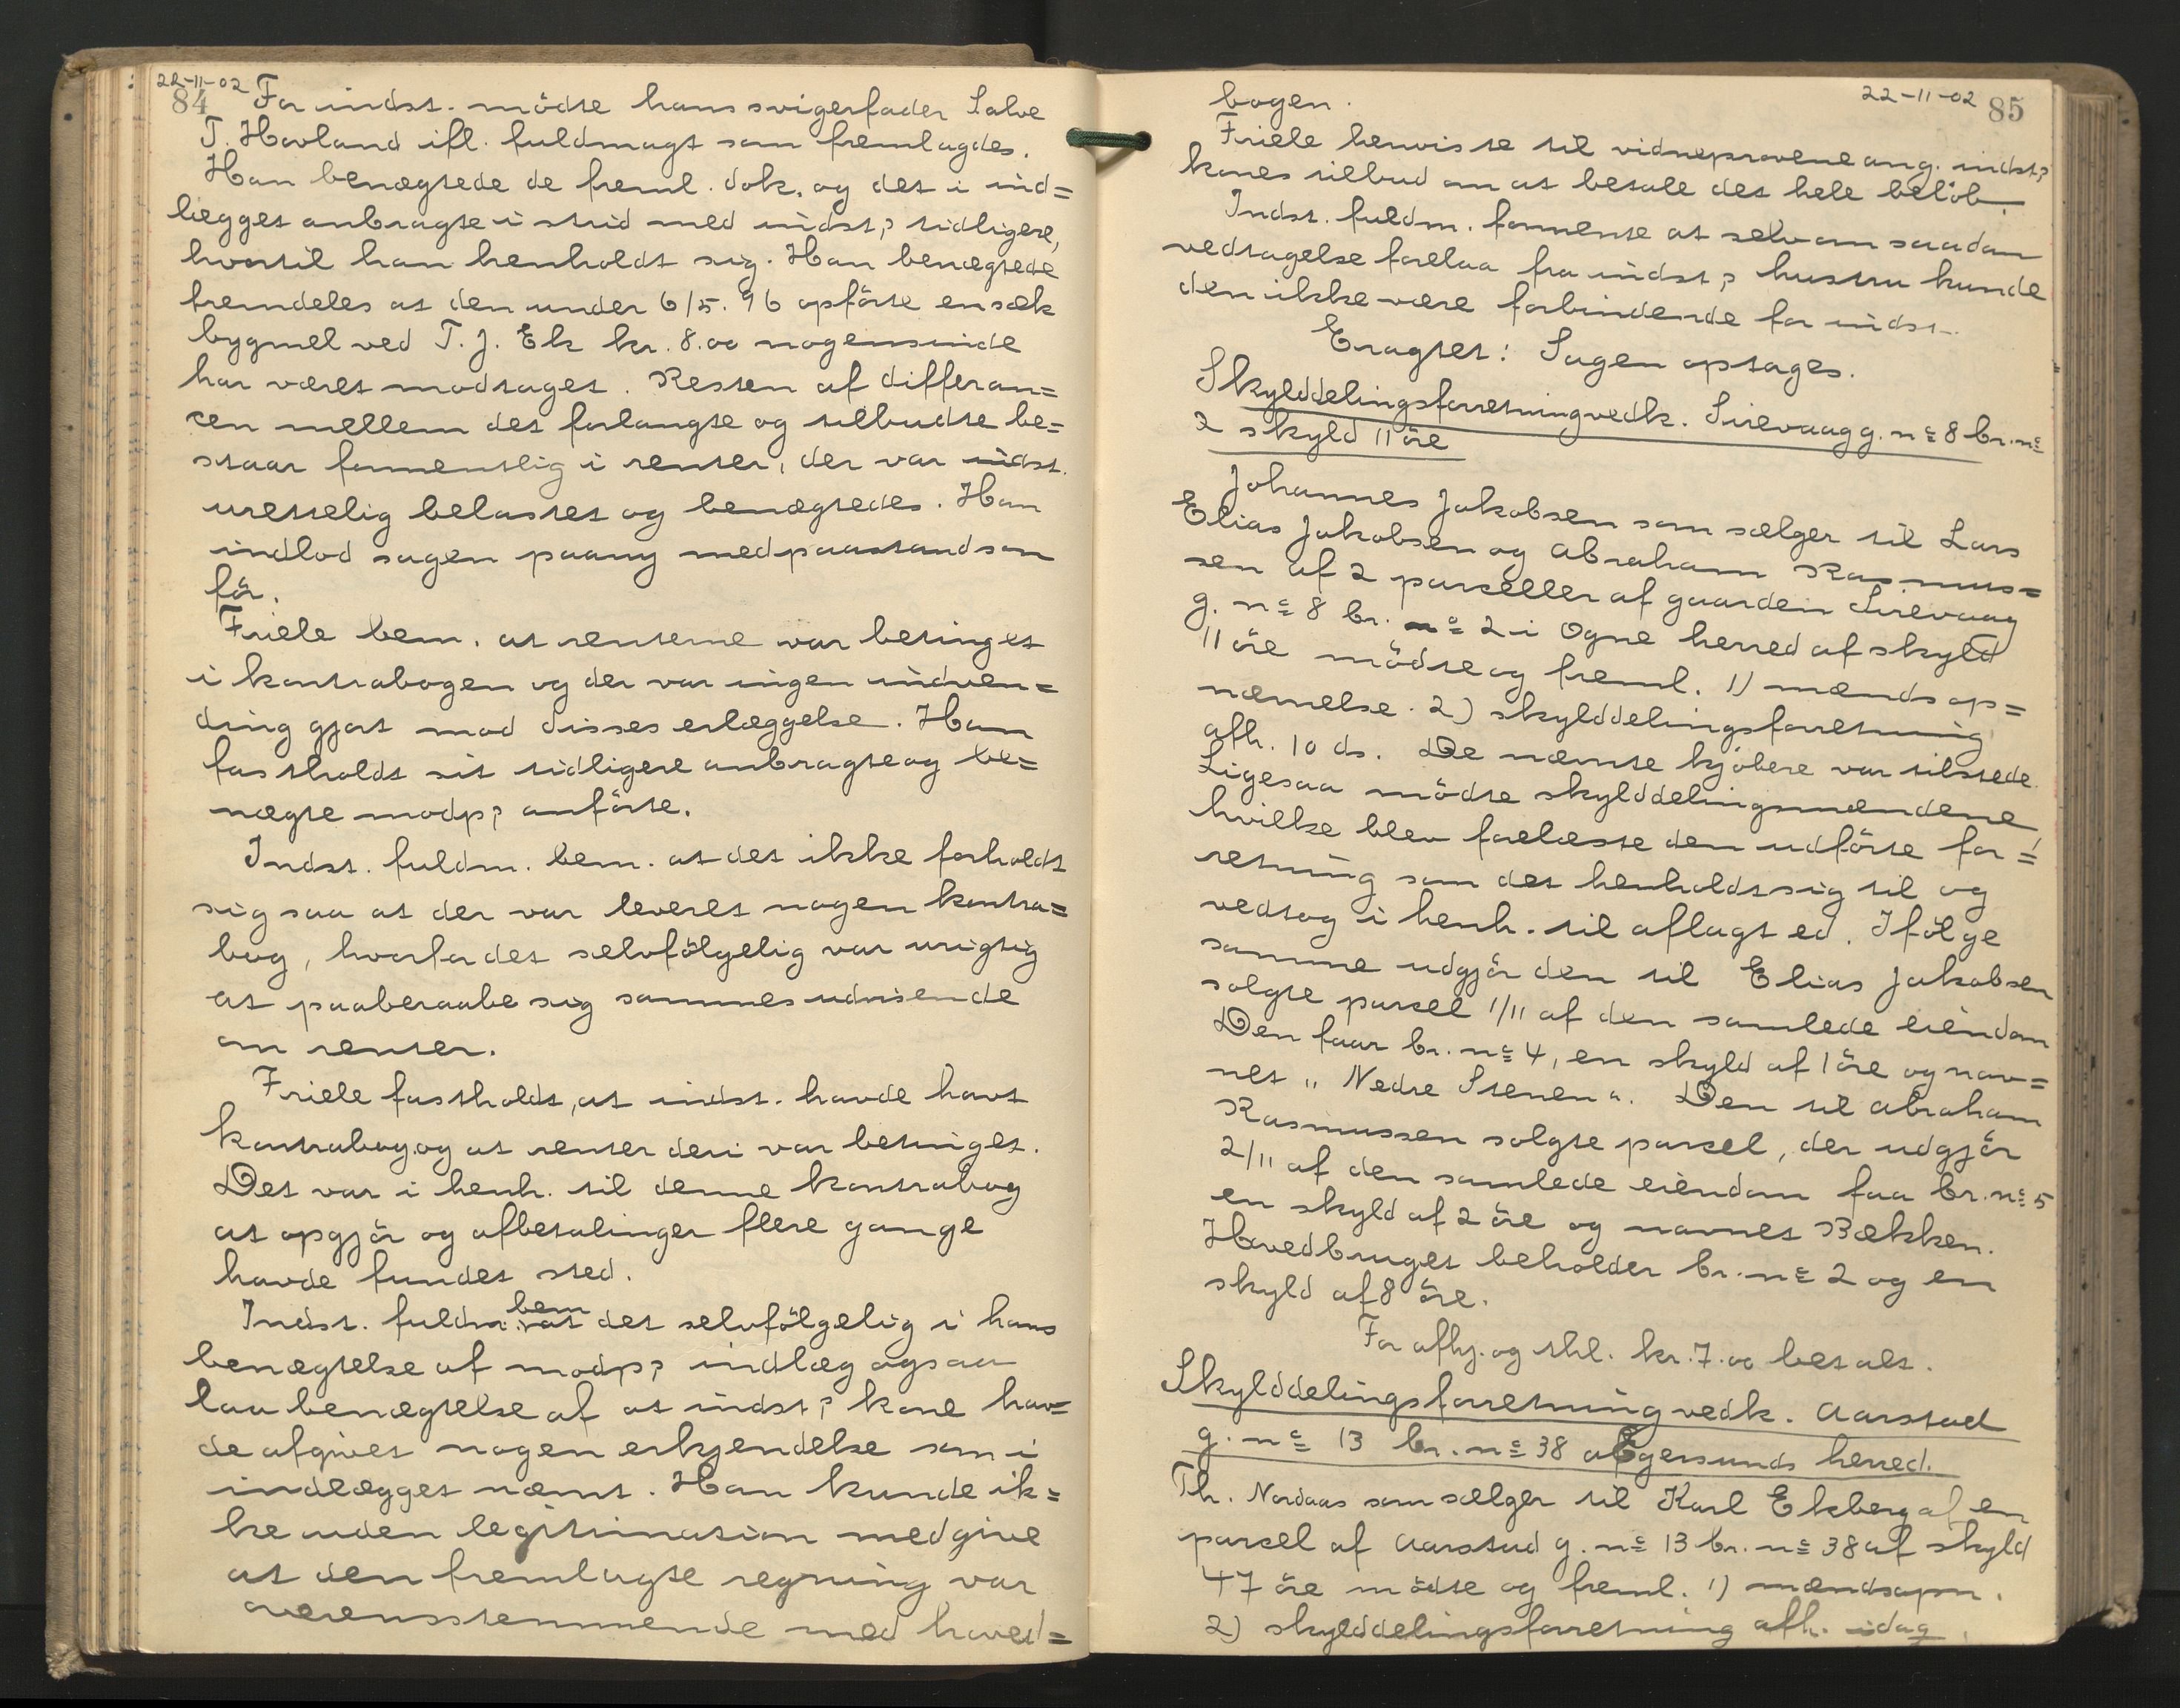 22-11-02
84 For indst. mödte hans svigerfader Salve
T. Havland ifl. fuldmagt som fremlagdes.
Han benægtede de freml. dok. og det i ind=
lægget anbragte i strid med indst's tidligere,
hvortil han henholdt sig. Han benægtede
fremdeles at den under 6/5. 96 opförte en sæk
bygmel ved T. J. Ek kr. 8.00 nogensinde
har været modtaget. Resten af differan=
cen mellem det forlangte og tilbudte be=
staar formentlig i renter, der var indst.
urettelig belastet og benægtedes. Han
indlod sagen paany med paastand som
för.
Friele bem. at renterne var betinget
i kontrabogen og der var ingen indven=
ding gjort mod disses erlæggelse. Han
fastholdt sit tidligere anbragte og be=
nægte modp's anförte.
Indst. fuldm. bem. at det ikke forholdt
sig saa at der var leveret nogen kontra=
bog, hvorfor det selvfölgelig var urigtig
at paaberaabe sig sammes udvisende
om renter.
Friele fastholdt, at indst. havde havt
kontrabog og at renter deri var betinget.
Det var i henh. til denne kontrabog
at opgjör og afbetalinger flere gange
havde fundet sted.
Indst. fuldm. bem at det selvfölgelig i hans
benægtelse af modp's indlæg ogsaa
laa benægtelse af at indst's kone hav=
de afgivet nogen erkjendelse som i
indlægget nævnt. Han kunde ik=
ke uden legitimation medgive
at den fremlagte regning var
overensstemmende med hoved=
22-11-02 85
bogen.
Friele henviste til vidneprovene ang. indst's
kones tilbud om at betale det hele belöb.
Indst. fuldm. formente at selv om saadan
vedtagelse forelaa fra indst's hustru kunde
den ikke være forbindende for indst.
Eragtet: Sagen optages.
Skylddelingsforretning vedk. Sirevaag g. no 8 br. no
2 skyld 11 öre
Johannes Jakobsen som sælger til Lars
Elias Jakobsen og Abraham Rasmus=
sen af 2 parceller af gaarden Sirevaag
g. no 8 br. no 2 i Ogne herred af skyld
11 öre mödte og freml. 1) mænds op=
nævnelse. 2) skylddelingsforretning
afh. 10 ds. De nævnte kjöbere var tilstede.
Ligesaa mödte skylddelingsmændene,
hvilke blev forelæste den udförte for=
retning som det henholdt sig til og
vedtog i henh. til aflagt ed. Ifölge
samme udgjör den til Elias Jakobsen
solgte parsel 1/11 af den samlede eiendom
Den faar br. no 4, en skyld af 1 öre og nav=
net „ Nedre Stenen ". Den til Abraham
Rasmussen solgte parsel, der udgjör
2/11 af den samlede eiendom faa br. no 5
en skyld af 2 öre og navnet Bækken.
Hovedbruget beholder br. no 2 og en
skyld af 8 öre.
For afhj. og thl. kr. 7.00 betalt.
Skylddelingsforretning vedk. Aarstad
g. no 13 br. no 38 a Egersunds herred.
Th. Nordaas som sælger til Karl Ekberg af en
parsel af Aarstad g. no 13 br. no 38 af skyld
47 öre mödte og freml. 1) mændsopn.
2) skylddelingsforretning afh. idag